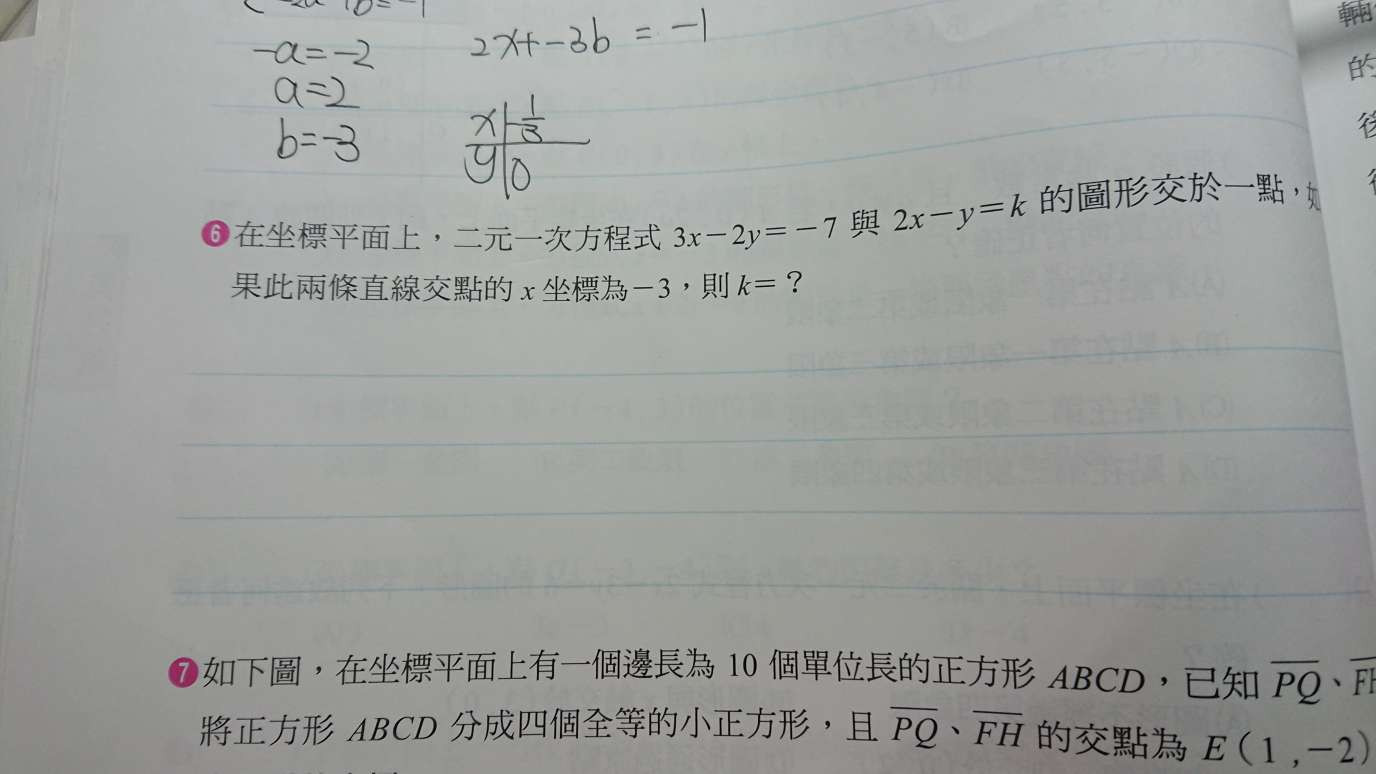 -a=-2
2x+-3b=-1
a=2
b=-3
x -1/3
y 0
6 在坐標平面上，二元一次方程式 3x－2y＝－7 與 2x－y＝k 的圖形交於一點，如
果此兩條直線交點的 x 坐標為－3，則 k＝？
7 如下圖，在坐標平面上有一個邊長為 10 個單位長的正方形 ABCD，已知 PQ、FH
將正方形 ABCD 分成四個全等的小正方形，且 PQ、FH 的交點為 E（1 ,－2）
輛
的